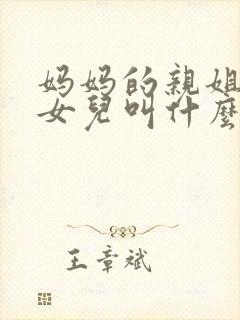 妈妈的親姐
女兒叫什麼
王章斌